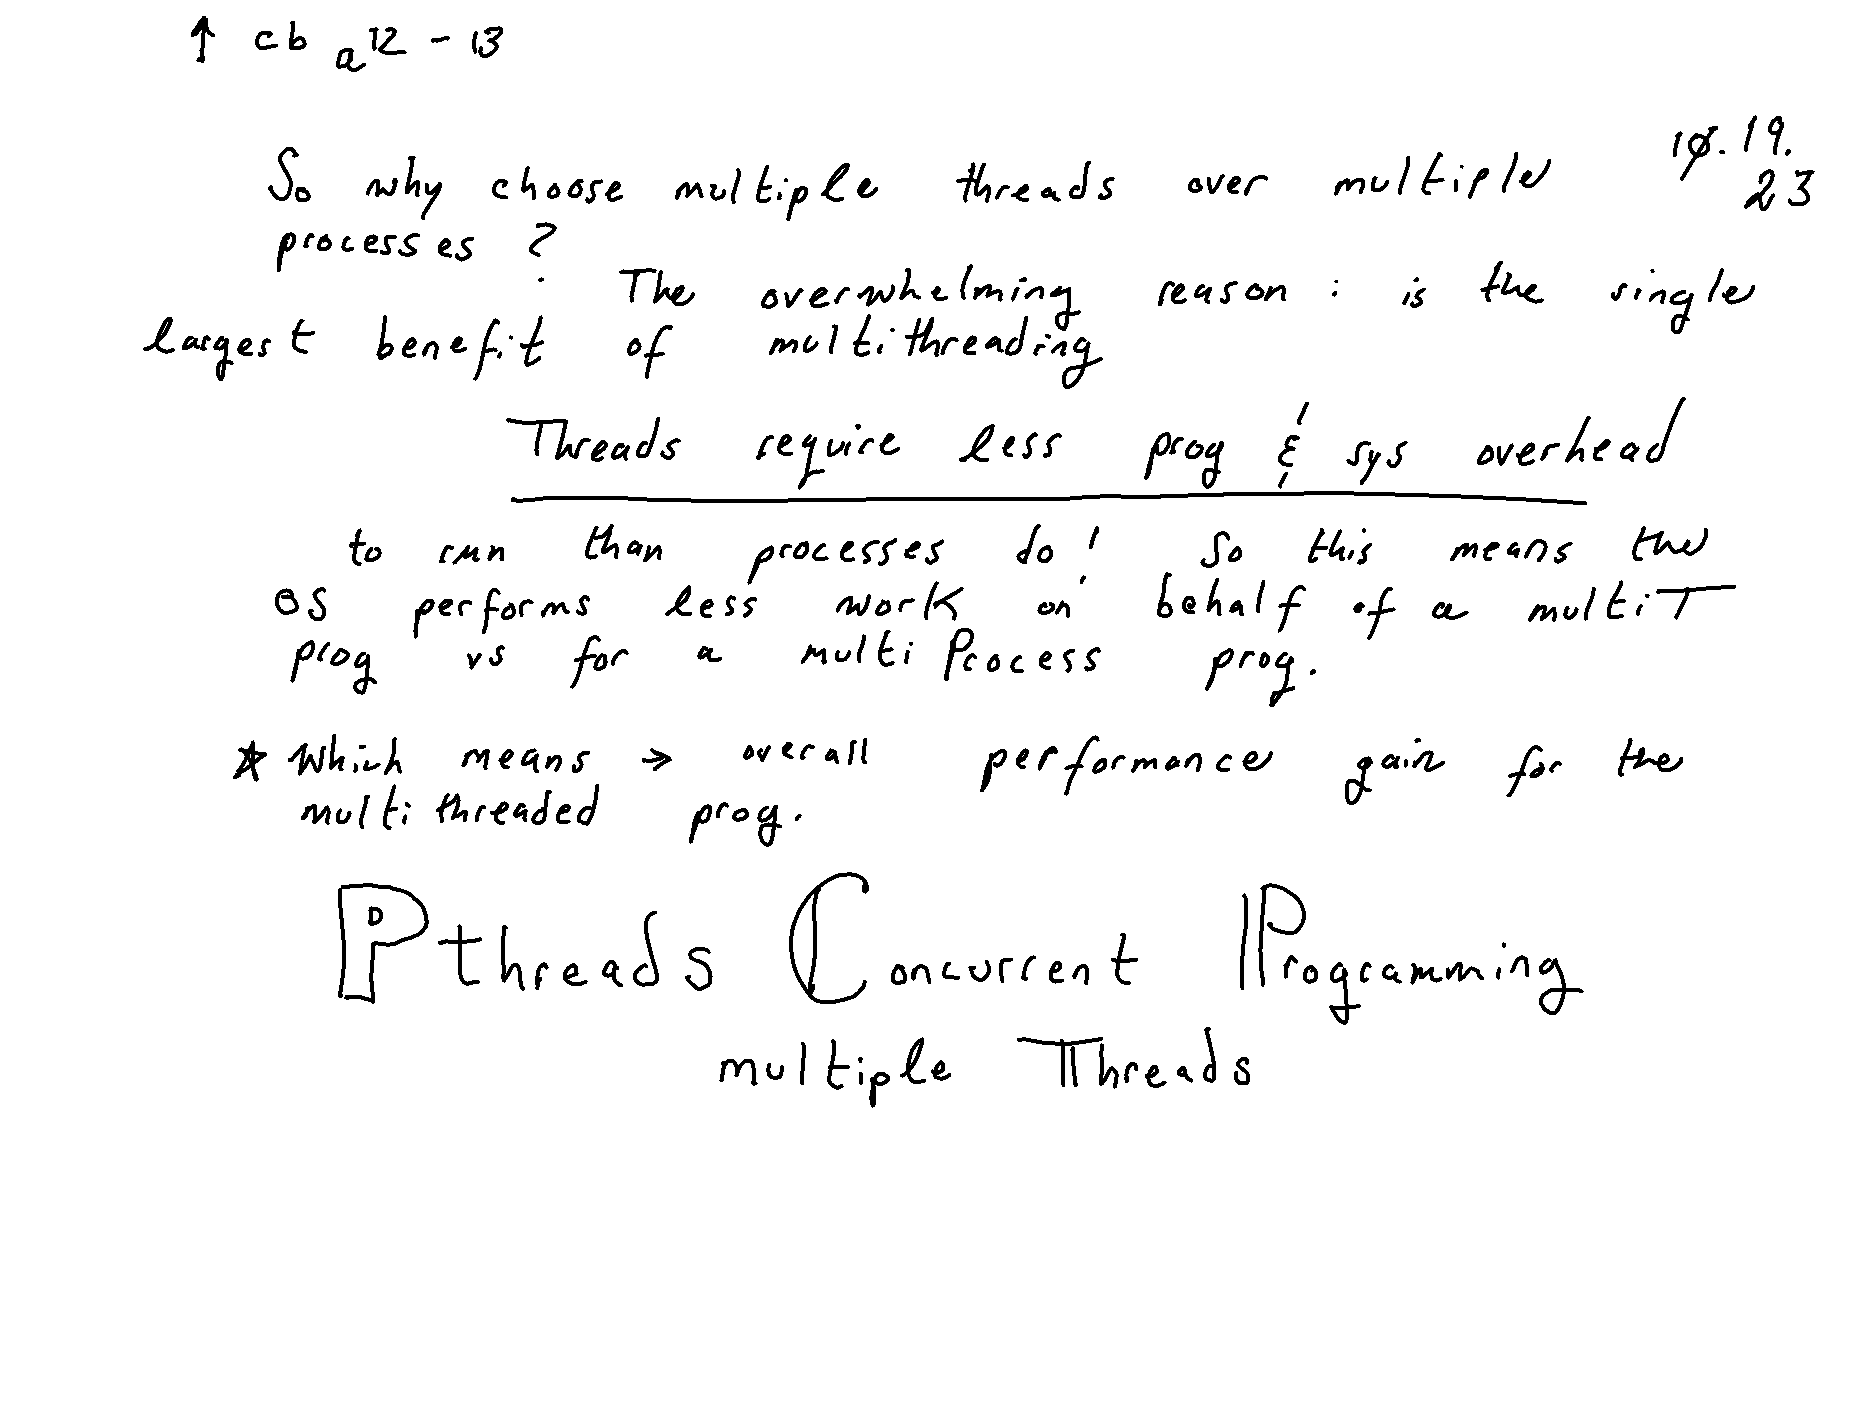 ↑ cb a12 - 13
10.19.
23
So why choose multiple threads over multiple
processes?
The overwhelming reason : is the single
largest benefit of multithreading
Threads require less prog & sys overhead
to run than processes do! So this means the
OS performs less work on behalf of a multiT
prog vs for a multiProcess prog.
* Which means → overall performance gain for the
multithreaded prog.
Pthreads Concurrent Programming
multiple Threads